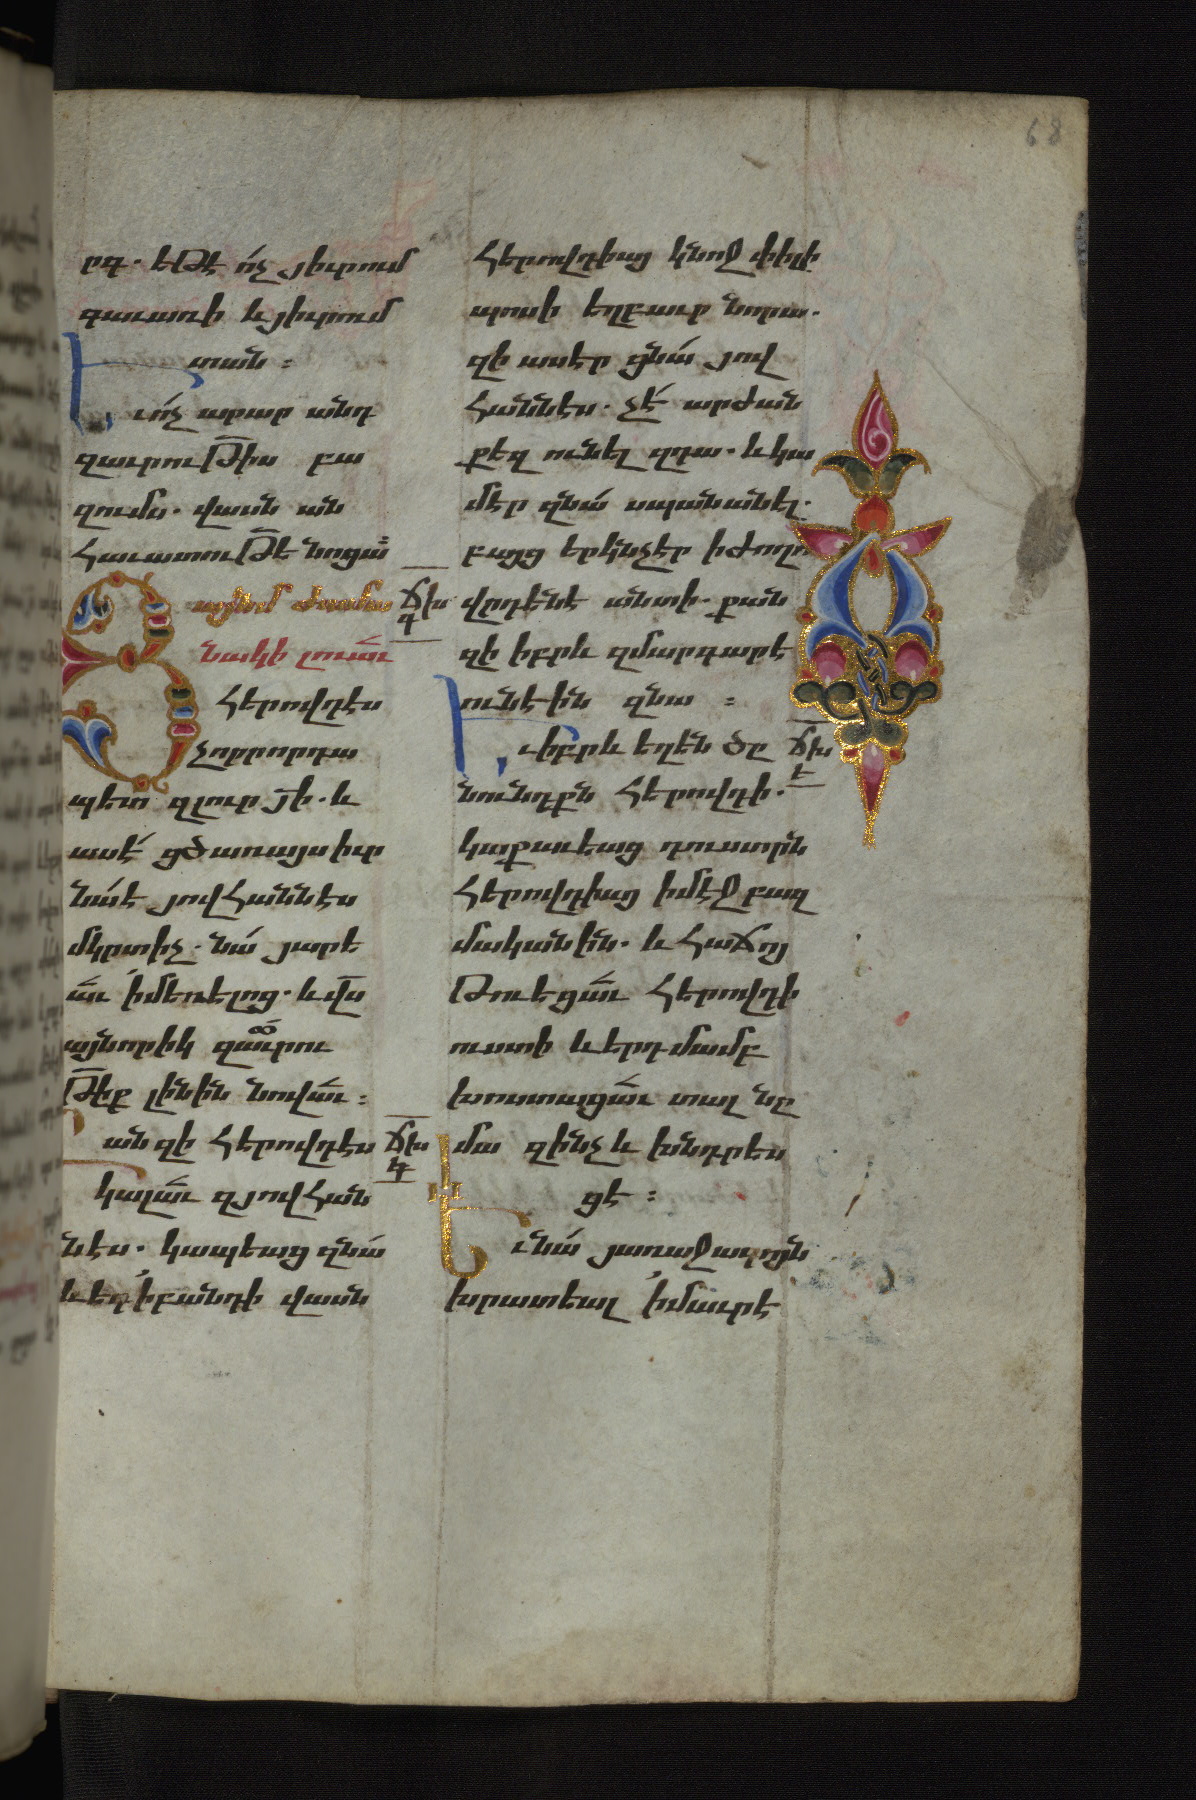 68
րգ. եթէ ո́չ յիւրում
գաւառի և յիւրում
տան :
Եւ ո́չ արար անդ
զաւրութիս բա
զումս. վասն ան
հաւատութե նոցա
Յայնմ ժամա
նակի լուաւ
Հերովդէս
չորրորդա
պետ զլուր յի. և
ասէ́ ցծառայս իւր
նա́ է յովհաննէս
մկրտիչ. նա́ յարե
աւ ի մեռելոց. և վս
այնորիկ զաւրու
թիք լինին նովաւ :
ան զի Հերովդէս
կալաւ զյովհան
նէս. կապեաց զնա́
և եդ ի բանդի վասն
ճխ
գ
ճխ
դ
Հերովդիայ կնոջ փիլի
պոսի եղբաւր նորա.
զի ասէր ցնա́ յով
հաննէս. չէ́ արժան
քեզ ունել զդա. և կա
մէր զնա́ սպանանել.
բայց երկնչէր ի ժողո
վրդէնէ անտի. քան
զի իբրև զմարգարէ
ունէին զնա :
Եւ իբրև եղեն ծը
նունդքն Հերովդի.
կաքաւեաց դուստրն
Հերովդիայ ի մէջ բազ
մականին. և հաճոյ
թուեցաւ Հերովդի
ուստի և երդմամբ
խոստացաւ տալ նը
մա զինչ և խնդրես
ցէ :
Եւ նա́ յառաջագոյն
խրատեալ ի մաւրէ
ճխ
ե